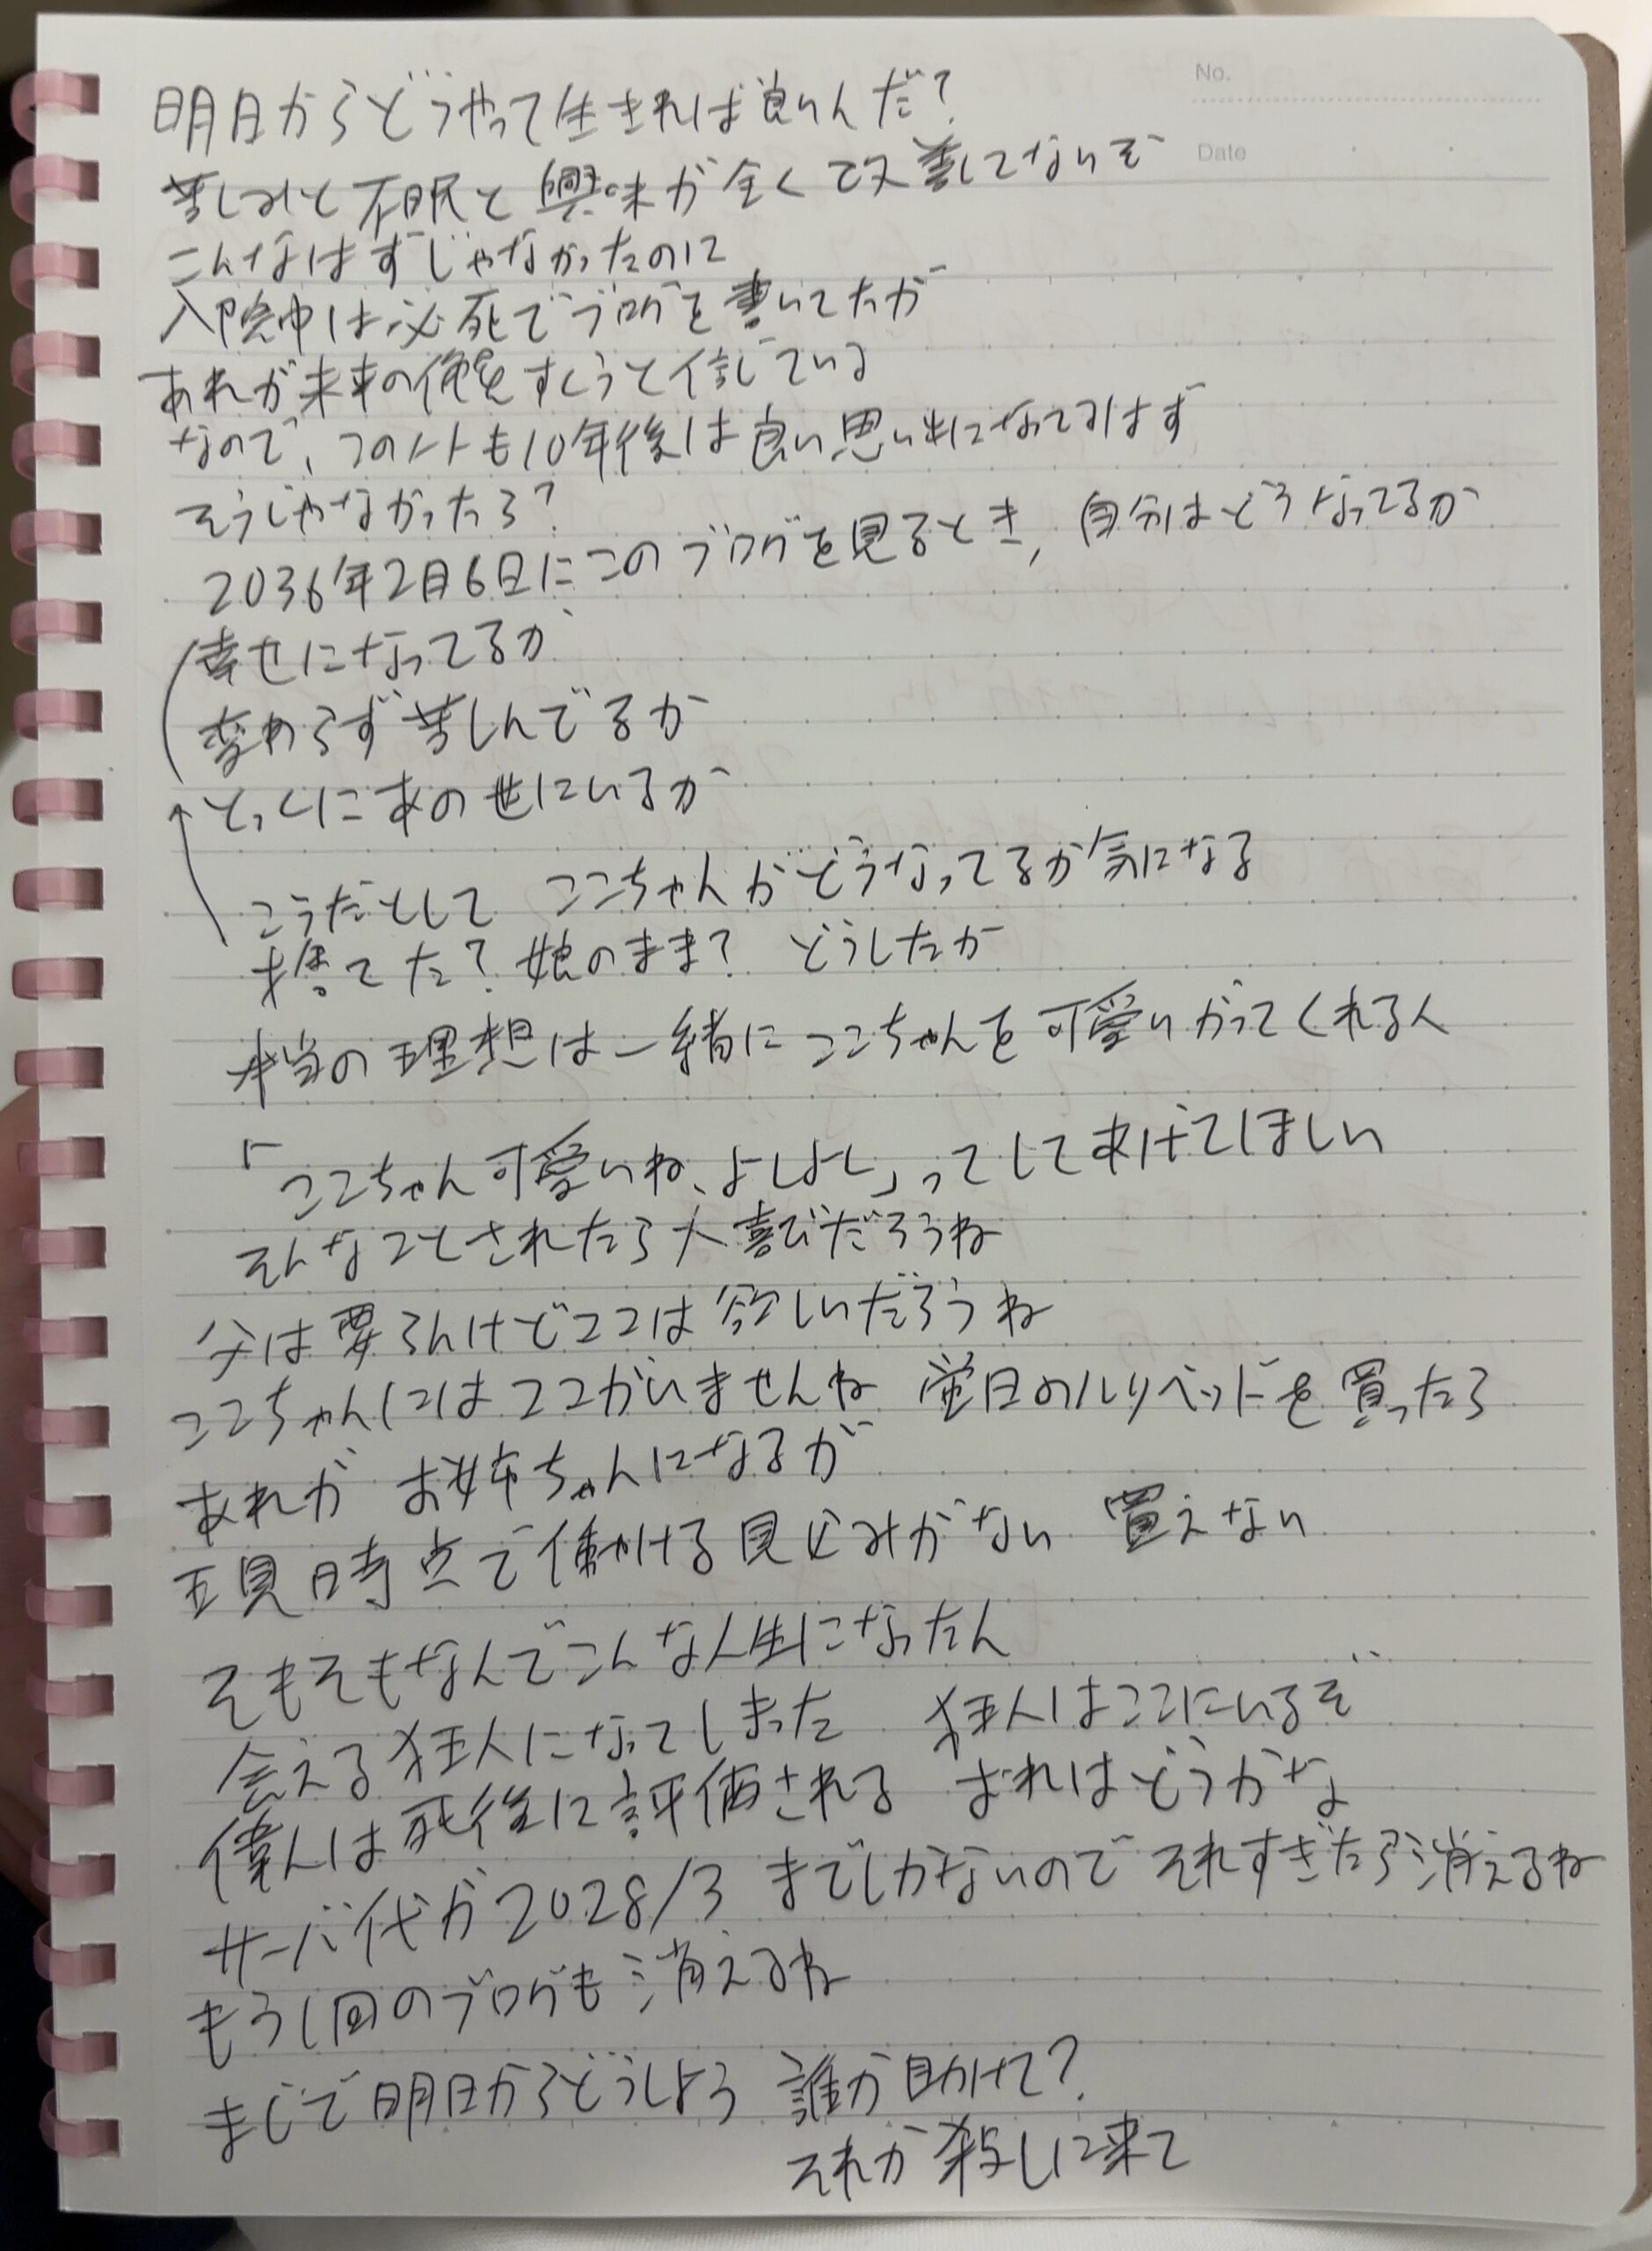 No.
Date
明日からどうやって生きれば良いんだ?
苦しみと不眠と興味が全く改善してないぞ
こんなはずじゃなかったのに
入院中は必死でブログを書いてたが
あれが未来の俺をすくうと信じている
なので、このノートも10年後は良い思い出になってるはず
そうじゃなかったら?
2036年2月6日にこのブログを見るとき、自分はどうなってるか
幸せになってるか
変わらず苦しんでるか
とっくにあの世にいるか
こうだとして ここちゃんがどうなってるか気になる
捨てた? 娘のまま? どうしたか
本当の理想は一緒にここちゃんを可愛いがってくれる人
「ここちゃん可愛いね、よしよし」ってしてあげてほしい
そんなことされたら大喜びだろうね
父は要らんけどココは欲しいだろうね
ここちゃんにはココがいませんね 蛍日のルリベッドを買ったら
あれが お姉ちゃんになるが
現時点で働ける見込みがない 買えない
そもそもなんでこんな人生になったん
会える狂人になってしまった 狂人はここにいるぞ
偉人は死後に評価される おれはどうかな
サーバ代が2028/3 までしかないので それすぎたら消えるね
もう1回のブログも消えるね
まじで明日からどうしよう 誰か助けて?
それか殺しに来て